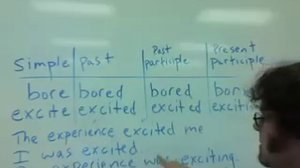 Simple Past Past participle Present participle
bore bored bored
excite excited excited
The experience excited me
I was excited.
experience was exciting.